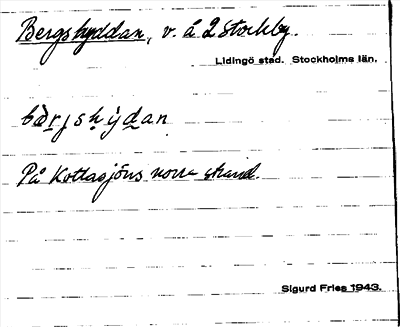 Bergshyddan, v. å 2 Stockby.
Lidingö stad. Stockholms län.
bær̩jshy̆dan
På Kottlasjöns norra strand.
Sigurd Fries 1943.